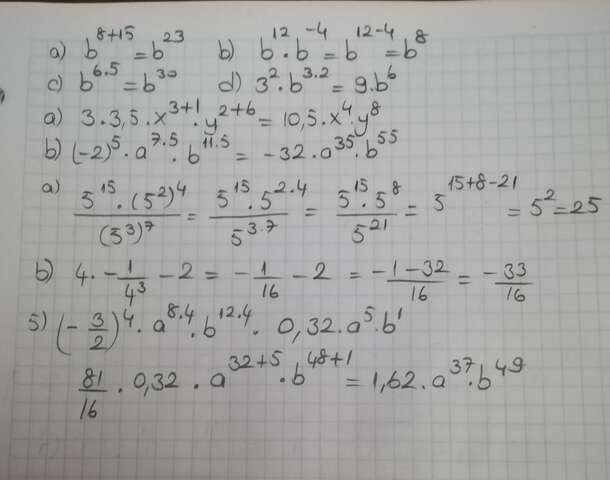 a) b^{8+15} = b^{23} b) b^{12} · b^{-4} = b^{12-4} = b^8
c) b^{6·5} = b^{30} d) 3^2 · b^{3·2} = 9 · b^6
a) 3 · 3,5 · x^{3+1} · y^{2+6} = 10,5 · x^4 · y^8
b) (-2)^5 · a^{7·5} · b^{11·5} = -32 · a^{35} · b^{55}
a) \frac{5^{15} · (5^2)^4}{(5^3)^7} = \frac{5^{15} · 5^{2·4}}{5^{3·7}} = \frac{5^{15} · 5^8}{5^{21}} = 5^{15+8-21} = 5^2 = 25
b) 4 · -\frac{1}{4^3} - 2 = -\frac{1}{16} - 2 = \frac{-1-32}{16} = \frac{-33}{16}
5) (-\frac{3}{2})^4 · a^{8·4} · b^{12·4} · 0,32 · a^5 · b^1
\frac{81}{16} · 0,32 · a^{32+5} · b^{48+1} = 1,62 · a^{37} · b^{49}